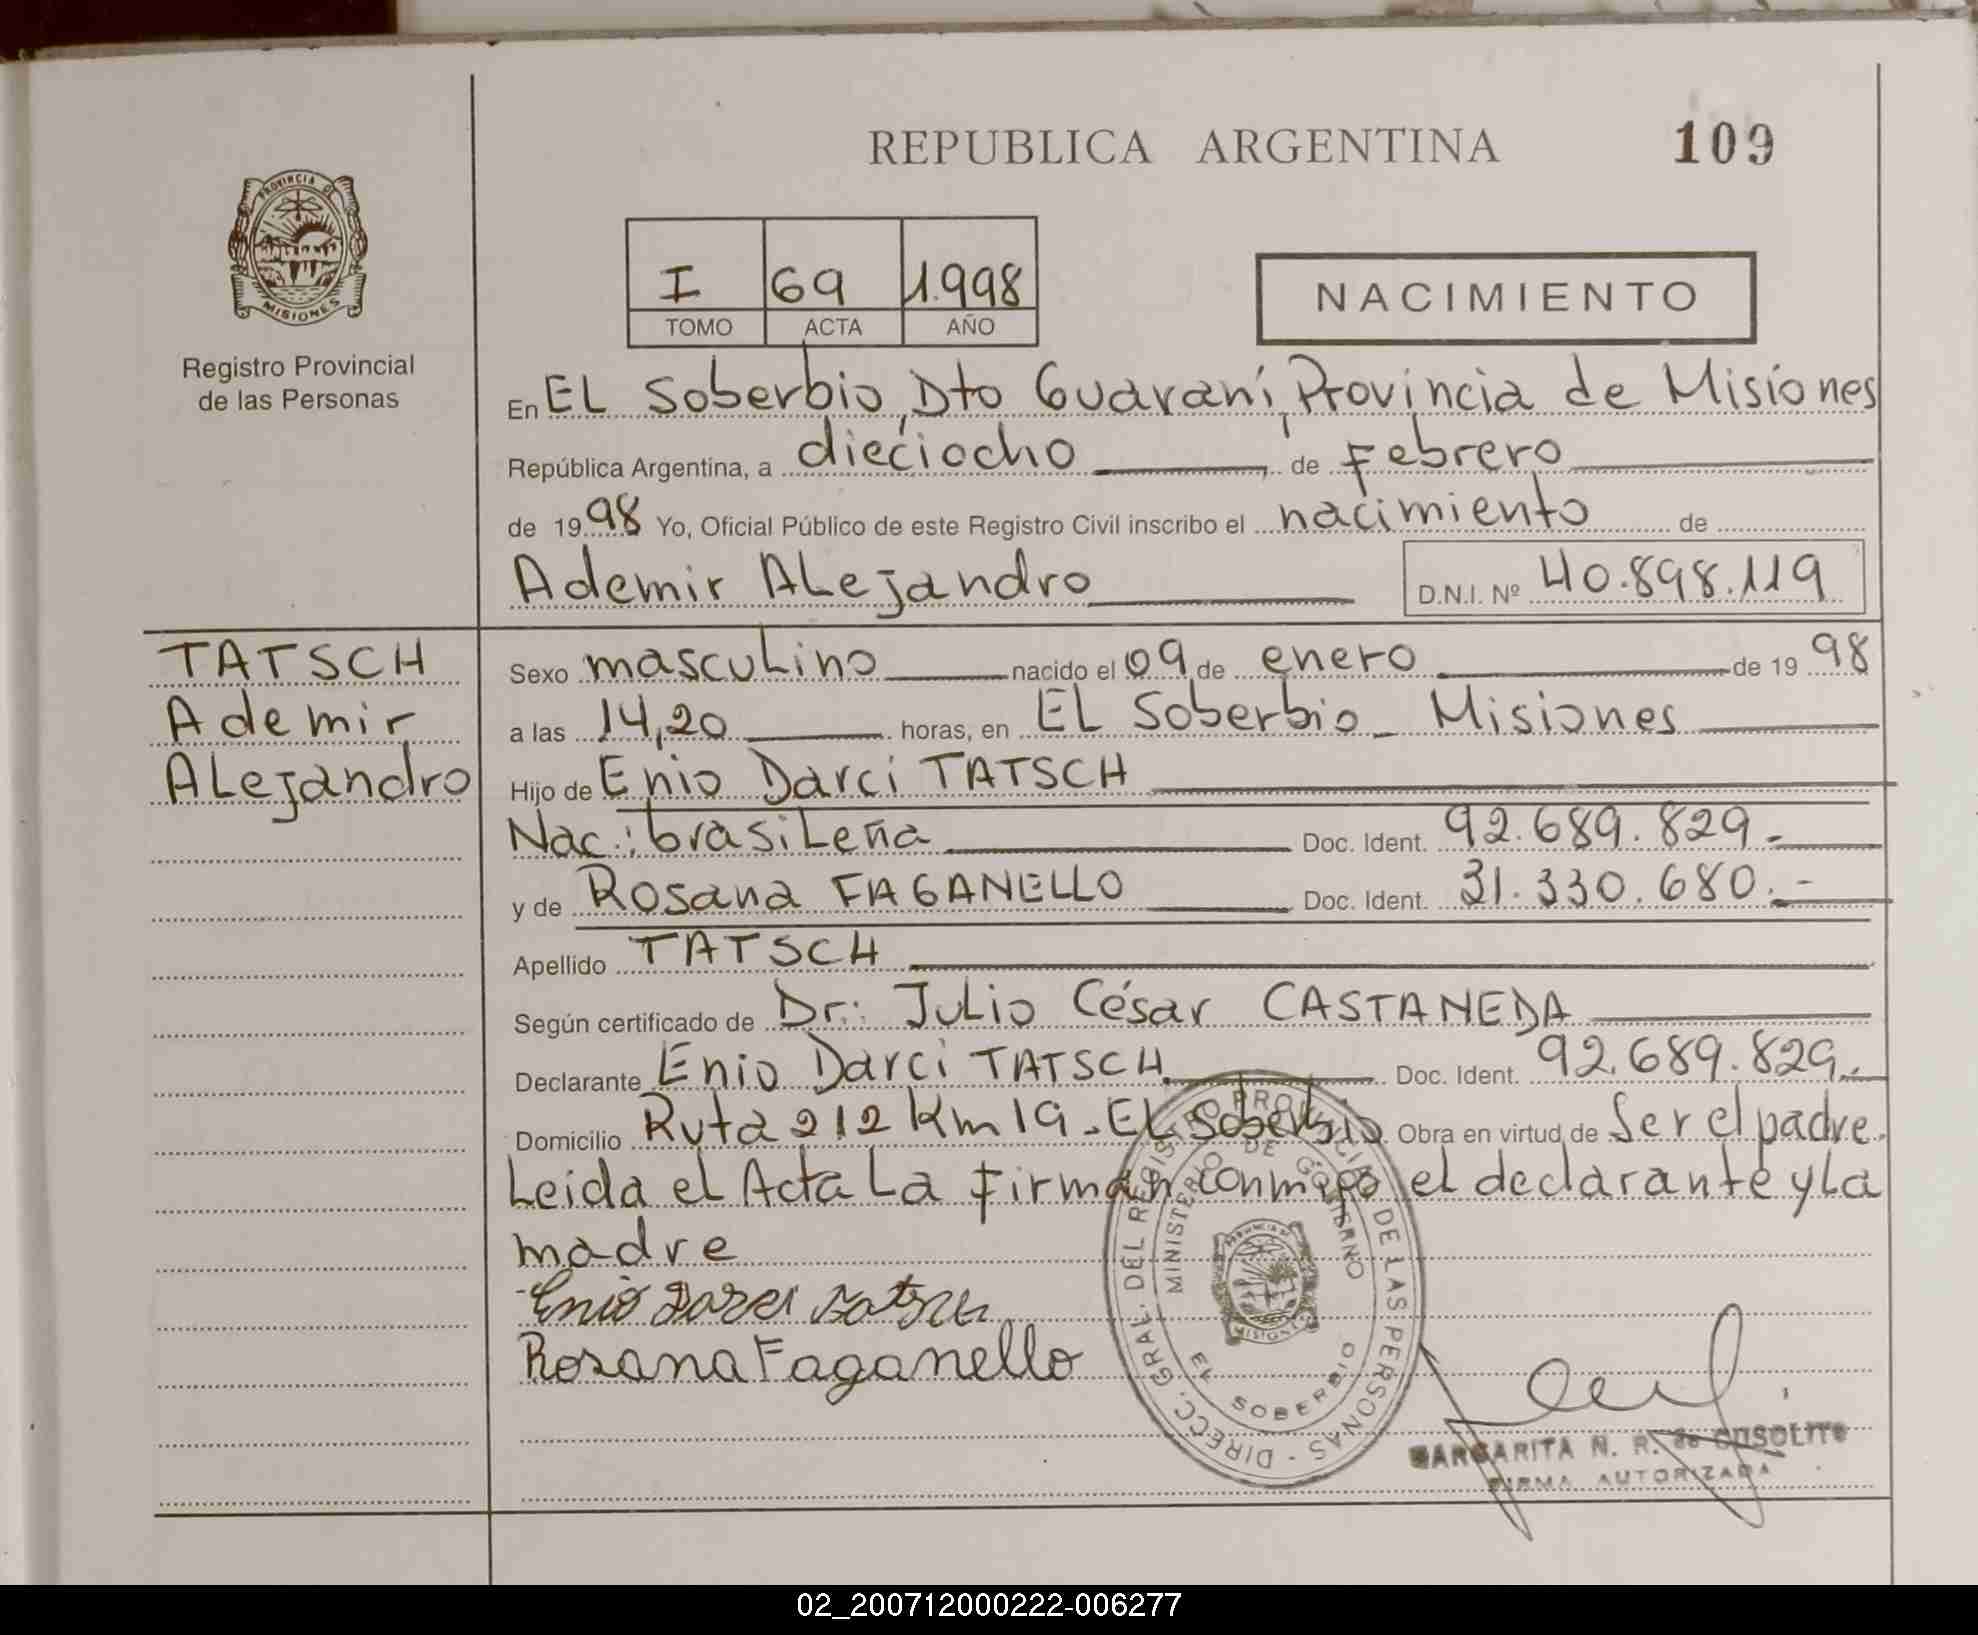 REPUBLICA ARGENTINA
109
PROVINCIA DE
MISIONES
Registro Provincial
de las Personas
I 69 1.998
TOMO ACTA AÑO
NACIMIENTO
En EL Soberbio, Dto Guaraní, Provincia de Misiones
República Argentina, a dieciocho de Febrero
de 1998 Yo, Oficial Público de este Registro Civil inscribo el nacimiento de
Ademir ALejandro D.N.I. Nº 40.898.119
TATSCH
Ademir
ALejandro
Sexo mascuLino nacido el 09 de enero de 1998
a las 14,20 horas, en EL Soberbio - Misiones
Hijo de Enio Darci TATSCH
Nac.: brasiLeña Doc. Ident. 92.689.829.-
y de Rosana FAGANELLO Doc. Ident. 31.330.680.-
Apellido TATSCH
Según certificado de Dr.: JuLio César CASTANEDA
Declarante Enio Darci TATSCH Doc. Ident. 92.689.829.-
Domicilio Ruta 212 Km 19 - EL Soberbio Obra en virtud de Ser el padre.
Leida el Acta La Firman conmigo el declarante y La
madre
Enio Darci Tatsch
Rosana Faganello
DIRECC. GRAL. DEL REGISTRO PROVINCIAL DE LAS PERSONAS -
MINISTERIO DE GOBIERNO
PROVINCIA DE
MISIONES
EL SOBERBIO
MARGARITA N. R. de
FIRMA AUTORIZADA
02_200712000222-006277